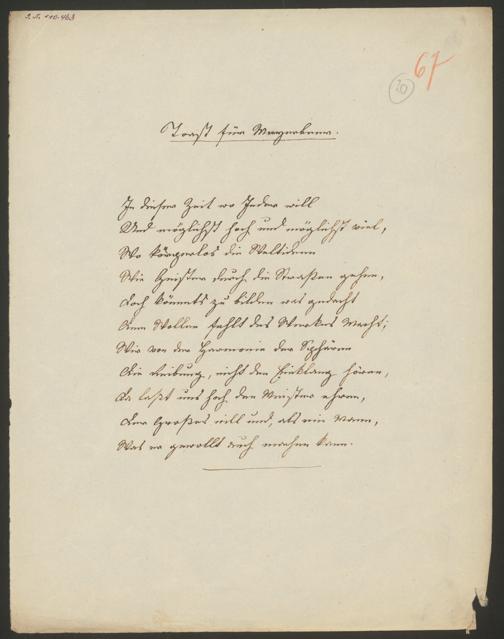 I. N. 110.463
67
20
Toast für Meyerbeer.
In dieser Zeit wo Jeder will
Und möglichst hoch und möglichst viel,
Wo körperlos die Weltideen
Wie Geister durch die Straßen gehen,
Doch könnt's zu bilden was gedacht
Dem Wollen fehlt des Werkes Macht;
Wir von der Harmonie der Sphären
Die Reibung, nicht den Einklang hören,
Da laßt uns hoch den Meister ehren,
Der Großes will und, als ein Mann,
Was er gewollt auch machen kann.